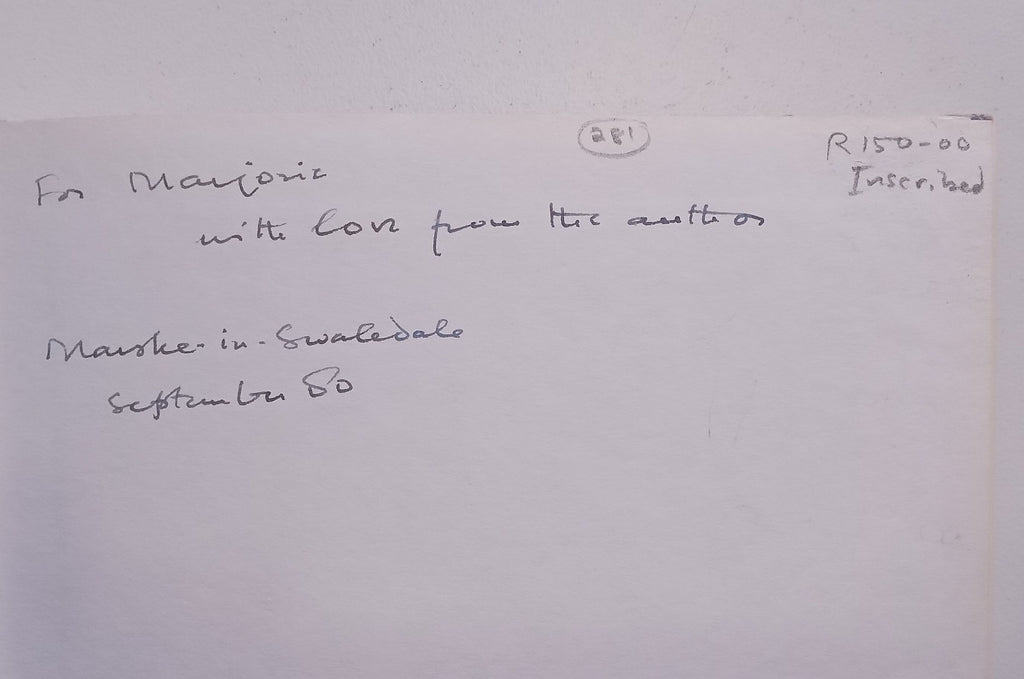 281
R150-00
Inscribed
For Marjorie
with love from the author
Marske-in-Swaledale
September 80